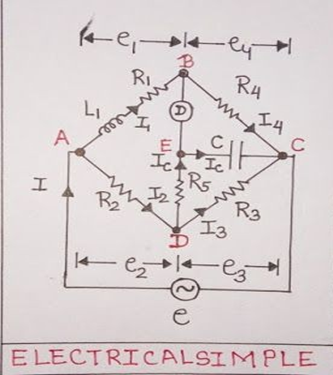 e₁ e₄
B
R₁ R₄
L₁ D
I₁ I₄
A E C C
I_c I_c
I R₂ I₂ R₅ R₃
I₃
D
e₂ e₃
e
ELECTRICALSIMPLE